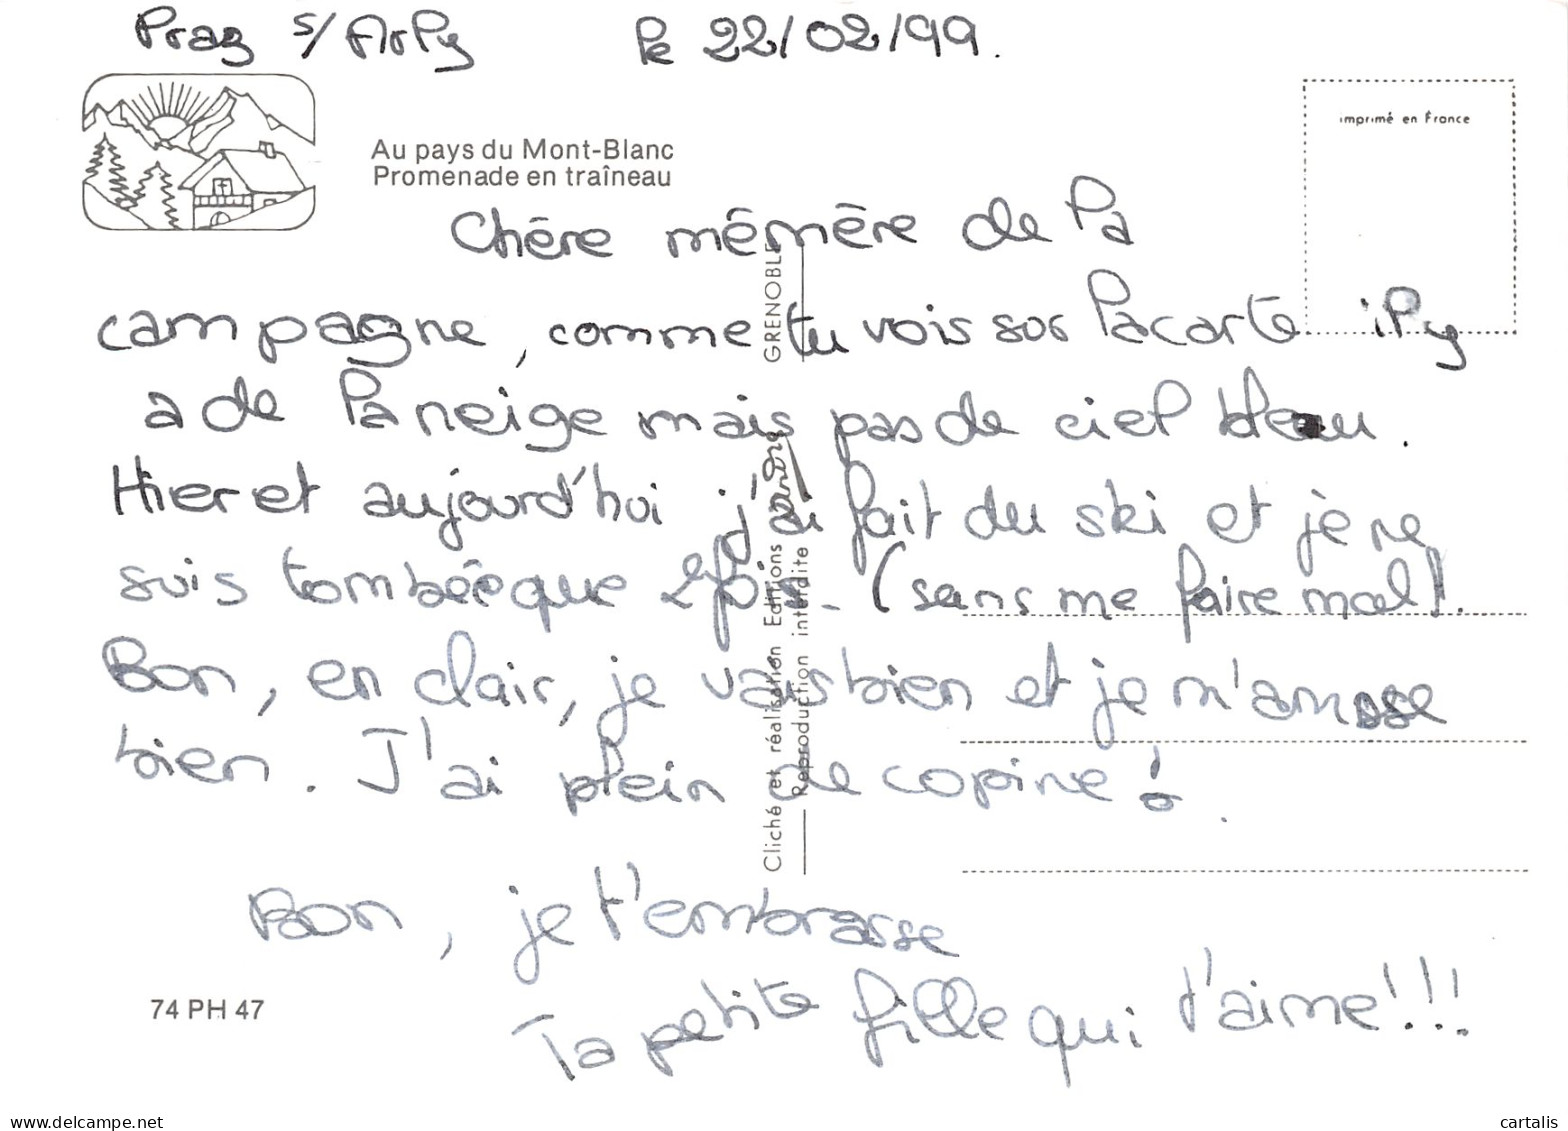 Praz s/ Arly le 22/02/99.
imprimé en France
Au pays du Mont-Blanc
Promenade en traîneau
Chère mémère de la
campagne, comme tu vois sur la carte il y
a de la neige mais pas de ciel bleu.
Hier et aujourd'hui j'ai fait du ski et je ne
suis tombée que 2 fois. (sans me faire mal).
Bon, en clair, je vais bien et je m'amuse
bien. J'ai plein de copine!
Bon, je t'embrasse
Ta petite fille qui t'aime!!!
74 PH 47
Cliché et réalisation Editions André GRENOBLE
Reproduction interdite
cartalis
www.delcampe.net